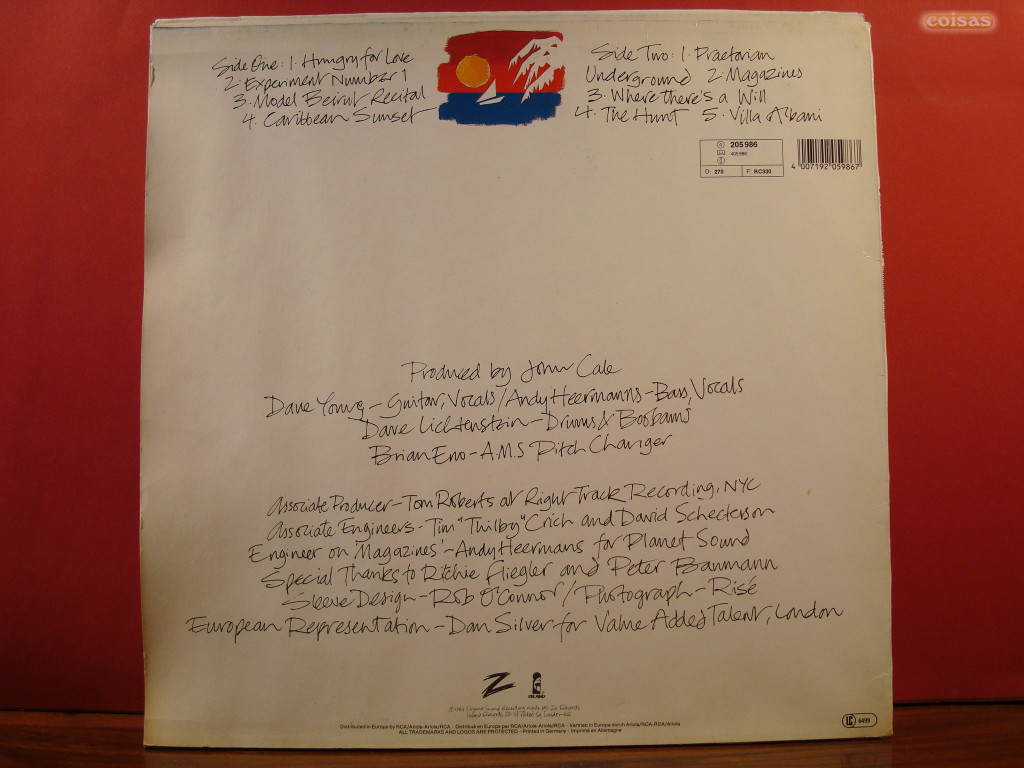 coisas
Side One: 1. Hungry for Love
2. Experiment Number 1
3. Model Beirut Recital
4. Caribbean Sunset
Side Two: 1. Praetorian
Underground 2. Magazines
3. Where There's a Will
4. The Hunt 5. Villa Albani
205 986
405 986
D: 270 F: RC330
4 007192 059867
Produced by John Cale
Dave Young – Guitar, Vocals / Andy Heermanns – Bass, Vocals
Dave Lichtenstein – Drums & Boobams
Brian Eno – A.M.S Pitch Changer
Associate Producer – Tom Roberts at Right Track Recording, NYC
Associate Engineers – Tim "Thilby" Crich and David Schecterson
Engineer on 'Magazines' – Andy Heermans for Planet Sound
Special Thanks to Ritchie Fliegler and Peter Baumann
Sleeve Design – Rob O'Connor / Photograph – Risé
European Representation – Dan Silver for Value Added Talent, London
Z ISLAND
Original Sound Recording made by Ze Records
Distributed in Europe by RCA/Ariola-Ariola/RCA · Distribué en Europe par RCA/Ariola-Ariola/RCA · Vertrieb in Europa durch Ariola/RCA-RCA/Ariola
ALL TRADEMARKS AND LOGOS ARE PROTECTED · Printed in Germany · Imprimé en Allemagne
LC 6499